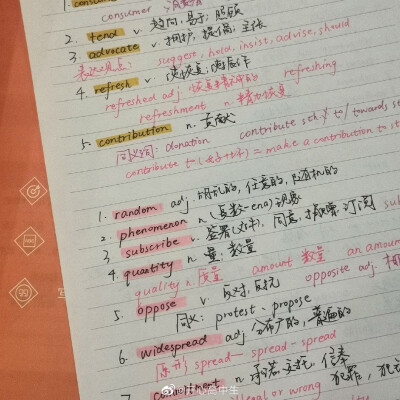 consumer
2. tend v. 趋向, 易于; 照顾
3. advocate v. 拥护, 提倡; 主张
表达观点: suggest, hold, insist, advise, should
4. refresh v. 使恢复;
refreshed adj. 恢复精神的 refreshing
refreshment n. 精力恢复
5. contribution n. 贡献
同义词: donation contribute sth. to/towards
contribute to = make a contribution to
1. random adj. 胡乱的, 任意的, 随机的
2. phenomenon n. (复数-ena) 现象
3. subscribe v. 签署(文件), 同意, 捐赠, 订阅
4. quantity n. 量, 数量
quality n. 质量 amount 数量 an amount
5. oppose v. 反对, 反抗 opposite adj.
同义: protest、propose
6. widespread adj. 分布广的, 普遍的
原形 spread—spread—spread
commitment n. 承诺, 委托, 信奉
illegal or wrong 犯罪,